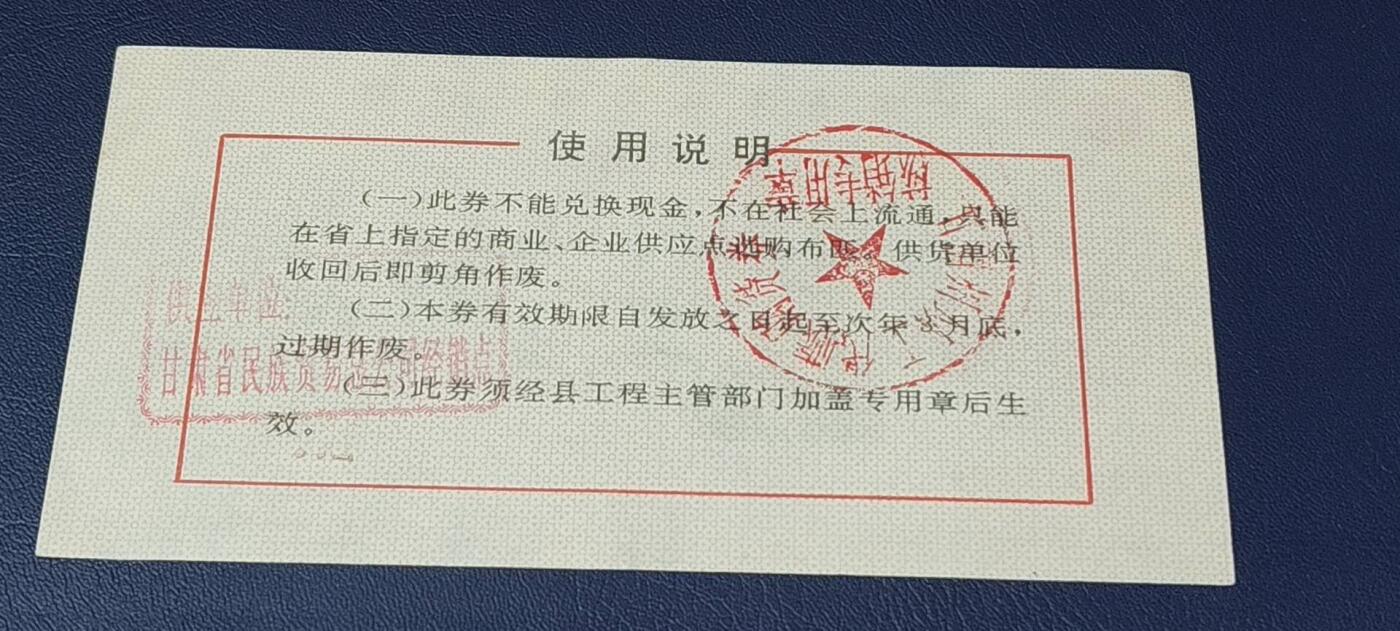 使用说明
(一)此券不能兑换现金,不在社会上流通,只能
在省上指定的商业、企业供应点选购布匹。供货单位
收回后即剪角作废。
(二)本券有效期限自发放之日起至次年3月底,
过期作废。
(三)此券须经县工程主管部门加盖专用章后生
效。
供应单位:
甘肃省民族贸易总公司经销点
核销专用章